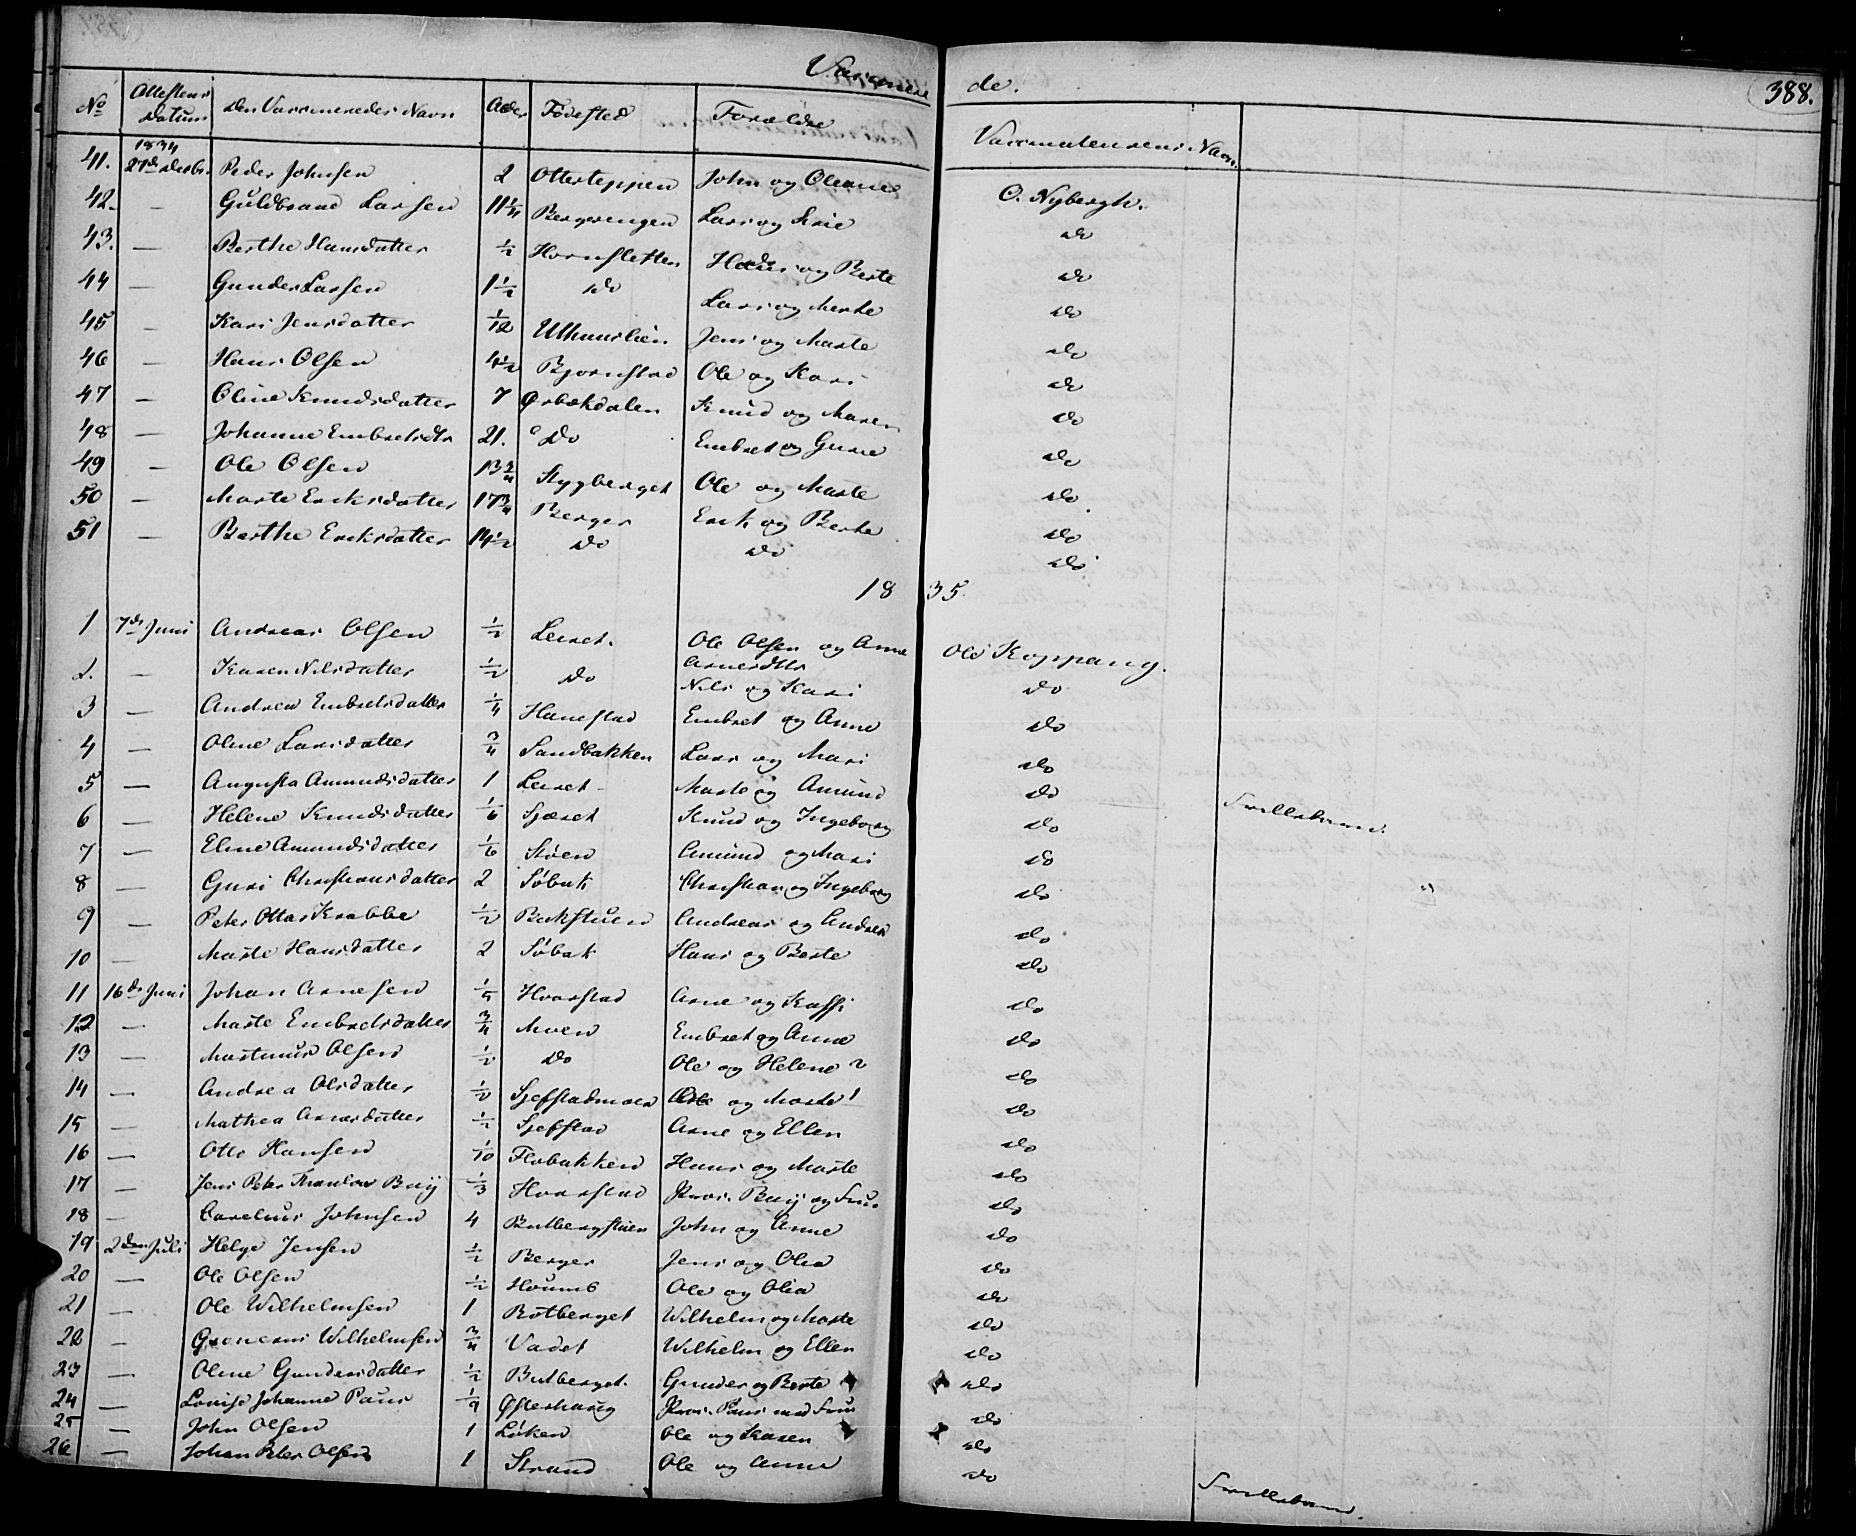 Vaccinerede. 388.
No Attestens Datum Den Vaccineredes Navn Alder Fødested Forældre Vaccinateurens Navn
1834
41. 27de Decbr. Peder Johnsen 2 Otterteppen John og Oleane O. Nybergh.
42. — Guldbrand Larsen 11 1/4 Bergerengen Lars og Marie do
43. — Berthe Hansdatter 1/2 Hornsletten Hans og Berte do
44 — Gunder Larsen 1 1/2 do Lars og Merte do
45 — Kari Jensdatter 1/12 Uthuuslien Jens og Marte do
46 — Hans Olsen 4 1/2 Bjørnstad Ole og Kari do
47 — Oline Knudsdatter 7 Ørbækdalen Knud og Maren do
48 — Johanne Embretsdtr 21. Do Embret og Gurie do
49 — Ole Olsen 13 3/4 Stygberget Ole og Marte do
50 — Marte Ericksdatter 17 3/4 Berger Erik og Berte do
51 — Berthe Ericksdatter 14 1/2 do do do
1835.
1 7de Juni Andreas Olsen 1/2 Leiret. Ole Olsen og Anne Arnesdttr Ole Koppang.
2. — Karen Nilsdatter 1/2 do Nils og Kari do
3 — Andrea Embretsdatter 1/4 Hanestad Embret og Anne do
4 — Oline Larsdatter 3/4 Sandbakken Lars og Mari do
5 — Augusta Amundsdatter 1 Leiret Marte og Amund do
6 — Helene Knudsdatter 1/6 Sjæset Knud og Ingeborg do
7 — Eline Amundsdatter 1/6 Støen Amund og Mari do
8 — Guri Christiansdatter 2 Søbak Christian og Ingeborg do
9 — Peter Ottar Krabbe 1/2 Bakstuen Andreas og Andrea do
10 — Marte Hansdatter 2 Søbak Hans og Berte do
11 16de Juni Johan Arnesen 1/5 Hvarstad Arne og Kaffi do
12 — Marte Embretsdatter 3/4 Moen Embret og Anne do
13 — Martinus Olsen 1/2 do Ole og Helene 2 do
14 — Andrea Olsdatter 1/2 Sjefstadmoen Ole og Marte 1 do
15 — Mathea Arnesdatter 1/2 Sjefstad Arne og Ellen do
16 — Otto Hansen 1/10 Flobakken Hans og Marte do
17 — Jens Peter Thaulow Buij 1/3 Hvarstad Prov. Buij og Frue do
18 — Carelius Johnsen 4 Butbergstuen John og Anne do
19 2den Juli Helge Jensen 1/2 Berger Jens og Olia do
20 — Ole Olsen 1/2 Houmb Ole og Olia do
21 — Ole Wilhelmsen 1 Butberget Wilhelm og Marte do
22 — Wilhelmsen 3/4 Vadet Wilhelm og Ellen do
23 — Oline Gundersdatter 1/2 Butberget. Gunder og Berte do
24 — Louise Johanne Paus 1/9 Østerhaug Prov. Paus med Frue do
25 — John Olsen 1 Løken Ole og Karen do
26 — Johan Peter Olsen 1 Strand Ole og Anne do